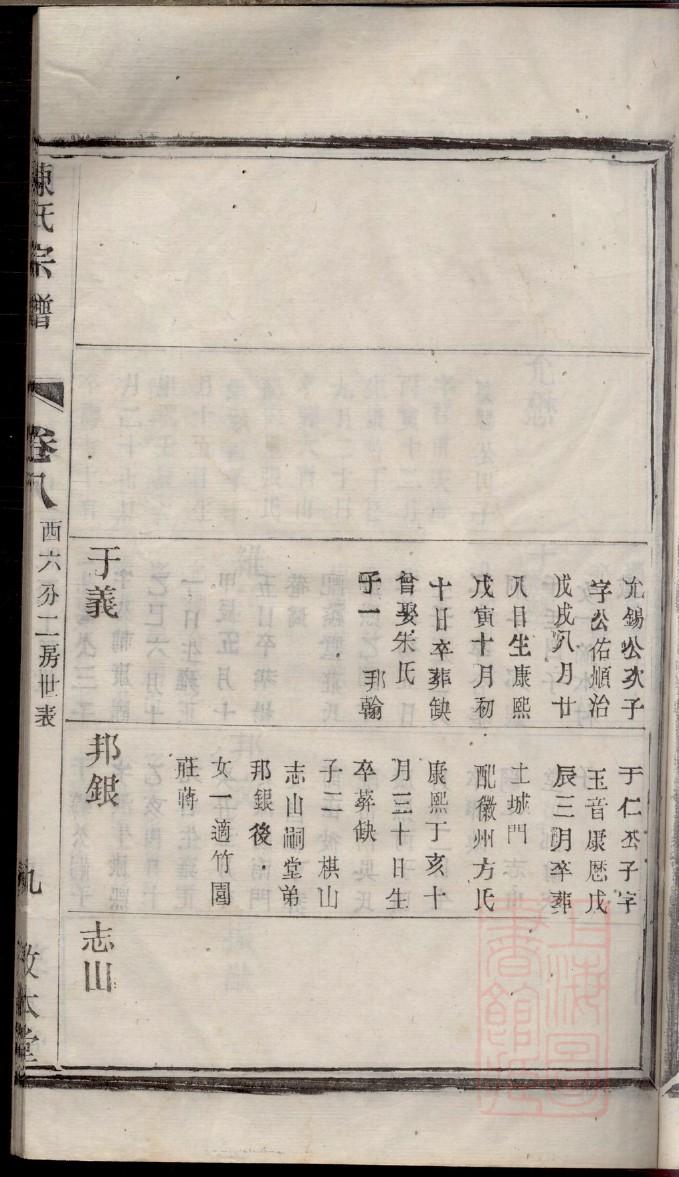 允錫公次子
字公佑順治
戊戌八月廿
八日生康熙
戊寅十月初
十日卒葬缺
曾娶朱氏
子一　邦翰
于義
于仁公子字
玉音康熙戊
辰三月卒葬
土城門
配徽州方氏
康熙丁亥十
月三十日生
卒葬缺
子二　棋山
志山嗣堂弟
邦銀後
女一適竹園
莊蔣
邦銀
志山
陳氏宗譜
卷八
西六分二房世表
九
敦本堂
上海圖書館藏